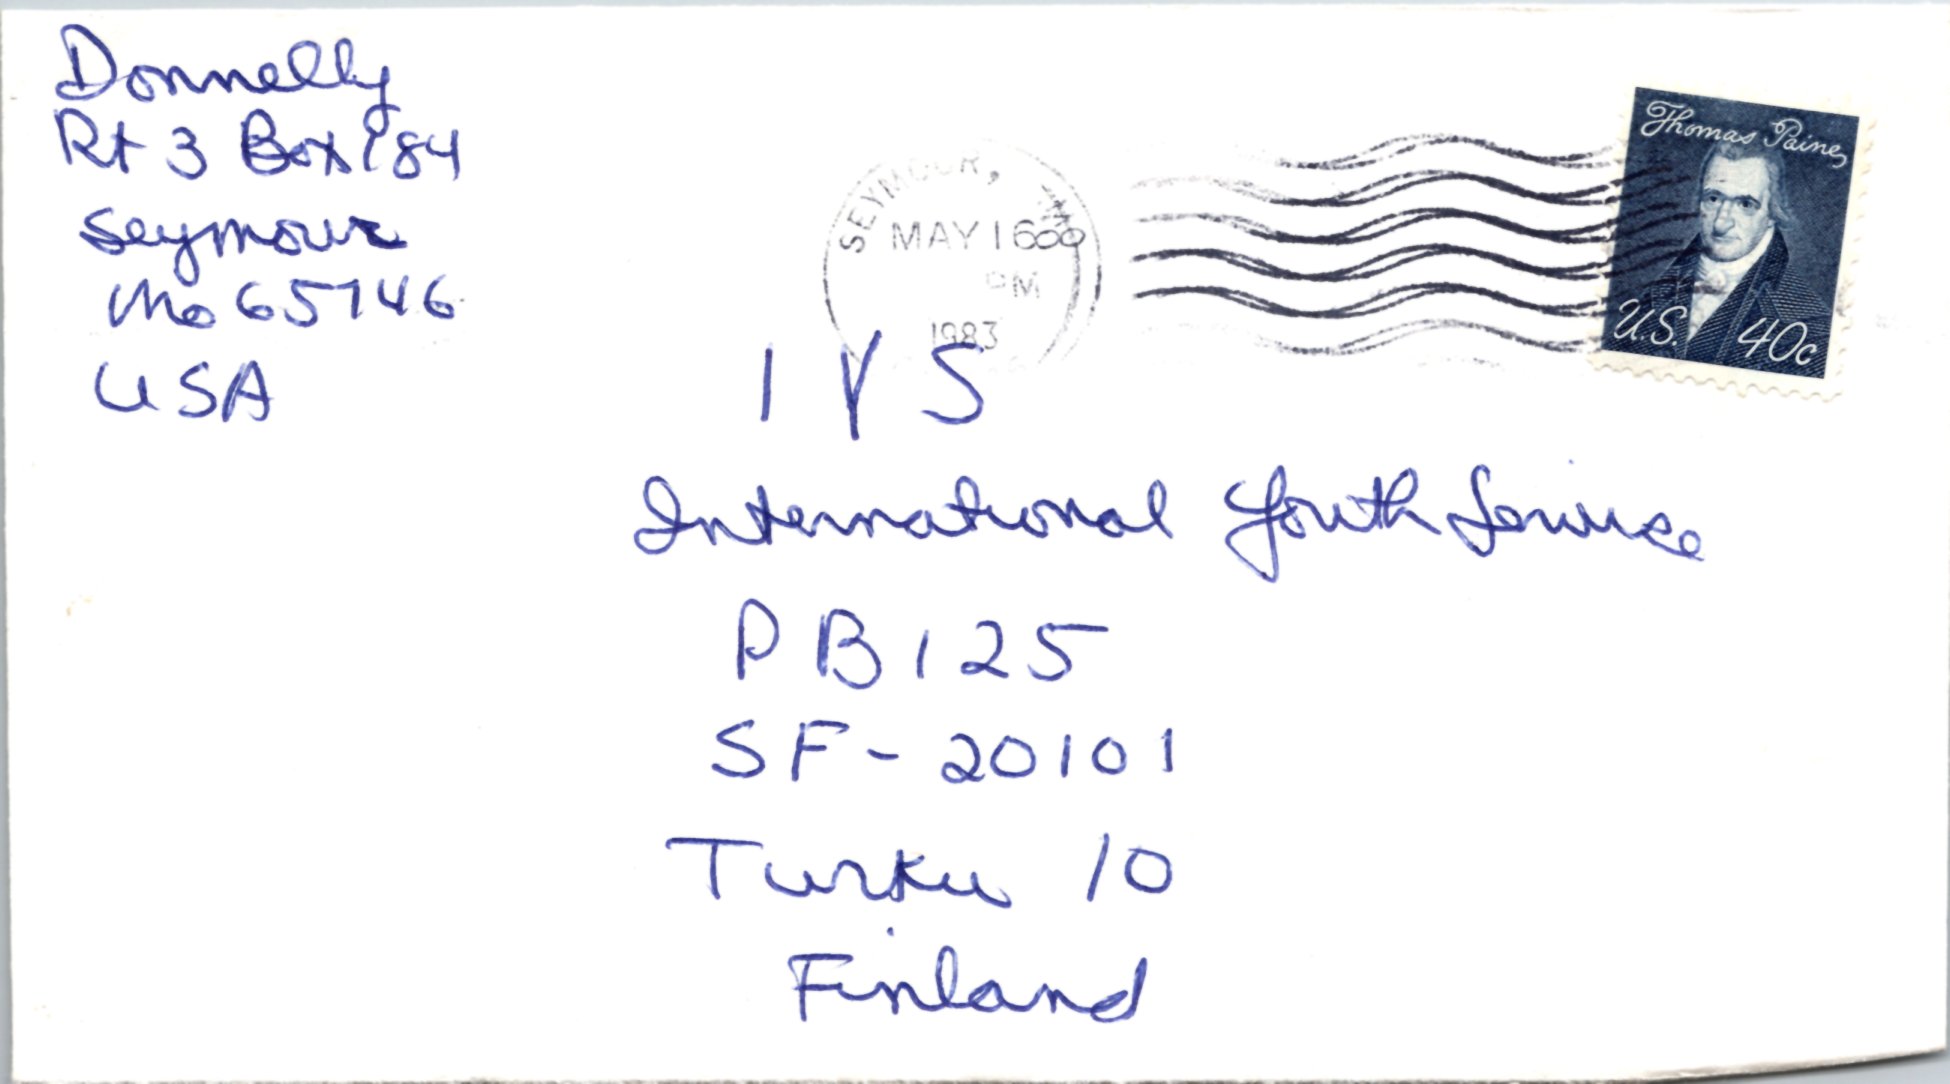 Donnelly
Rt 3 Box 184
Seymour
Mo 65746
USA
SEYMOUR,
MAY 16
PM
1983
Thomas Paine
U.S. 40c
I Y S
International Youth Service
P B 125
SF - 20101
Turku 10
Finland